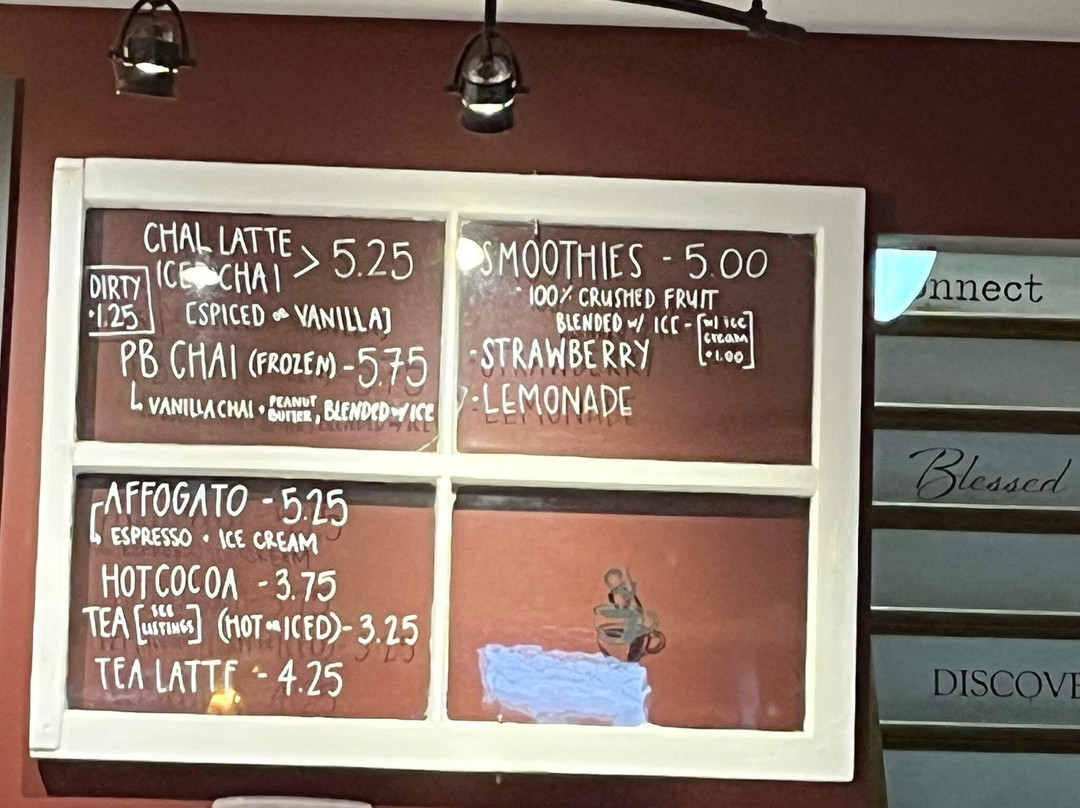 CHAI LATTE
ICED CHAI > 5.25
DIRTY
•1.25
[SPICED or VANILLA]
PB CHAI (FROZEN) - 5.75
VANILLA CHAI • PEANUT BUTTER, BLENDED w/ ICE
AFFOGATO - 5.25
ESPRESSO • ICE CREAM
HOT COCOA - 3.75
TEA [SEE LISTINGS] (HOT or ICED) - 3.25
TEA LATTE - 4.25
SMOOTHIES - 5.00
• 100% CRUSHED FRUIT
BLENDED w/ ICE - [w/ ice cream •1.00]
• STRAWBERRY
• LEMONADE
onnect
Blessed
DISCOVE